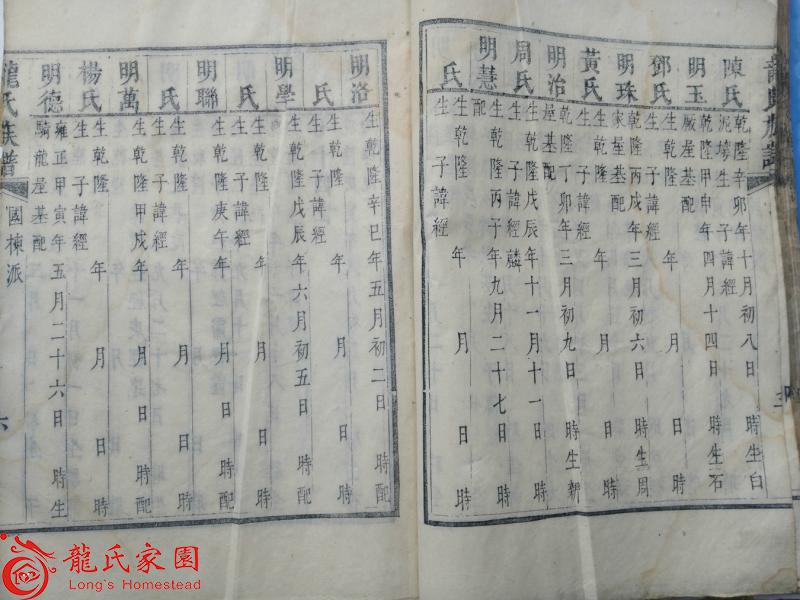 陳氏 乾隆辛卯年十月初八日 時生白
泥塝生 子諱經
明玉 乾隆甲申年四月十四日 時生石
厰屋基配
鄧氏 生乾隆 年 月 日 時
生 子諱經
明珠 乾隆丙戌年三月初六日 時生周
家屋基配
黃氏 生乾隆 年 月 日 時
生 子諱經
明治 乾隆丁卯年三月初九日 時生新
屋基配
周氏 生乾隆戊辰年十一月十一日 時
生 子諱經麟
明慧 生乾隆丙子年九月二十七日 時
配
氏 生乾隆 年 月 日 時
生 子諱經
明洛 生乾隆辛巳年五月初二日 時配
氏 生乾隆 年 月 日 時
生 子諱經
明學 生乾隆戊辰年六月初五日 時配
氏 生乾隆 年 月 日 時
生 子諱經
明聯 生乾隆庚午年 月 日 時配
氏 生乾隆 年 月 日 時
生 子諱經
明萬 生乾隆甲戌年 月 日 時配
楊氏 生乾隆 年 月 日 時
生 子諱經
明德 雍正甲寅年五月二十六日 時生
騎龍屋基配
龍氏族譜 國棟派 六
龍氏家園
Long's Homestead